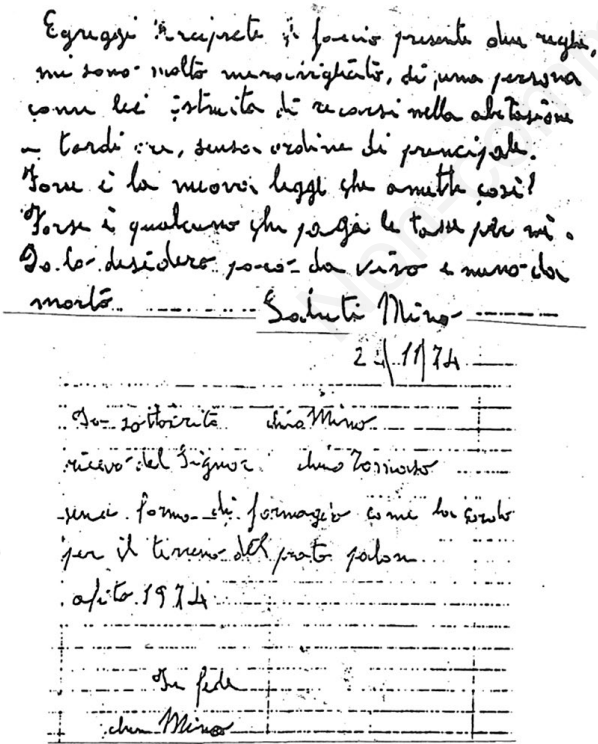 Egreggi Arciprete li faccio presente due righe,
mi sono molto meravigliato, di una persona
come lei istruita di recarsi nella abitasione
a tardi ore, sensa ordine di principale.
Forse è la nuova leggi che amette così?
Forse è qualcuno che paga le tasse per mè.
Io lo desidero poco da vivo e meno da
morto Saluti Mino
2/11/74
Io sottoscrito Mino
ricevo del Signor Tomaso
forma di formagio come
per il terreno del prato
afito 1974
In fede
Mino